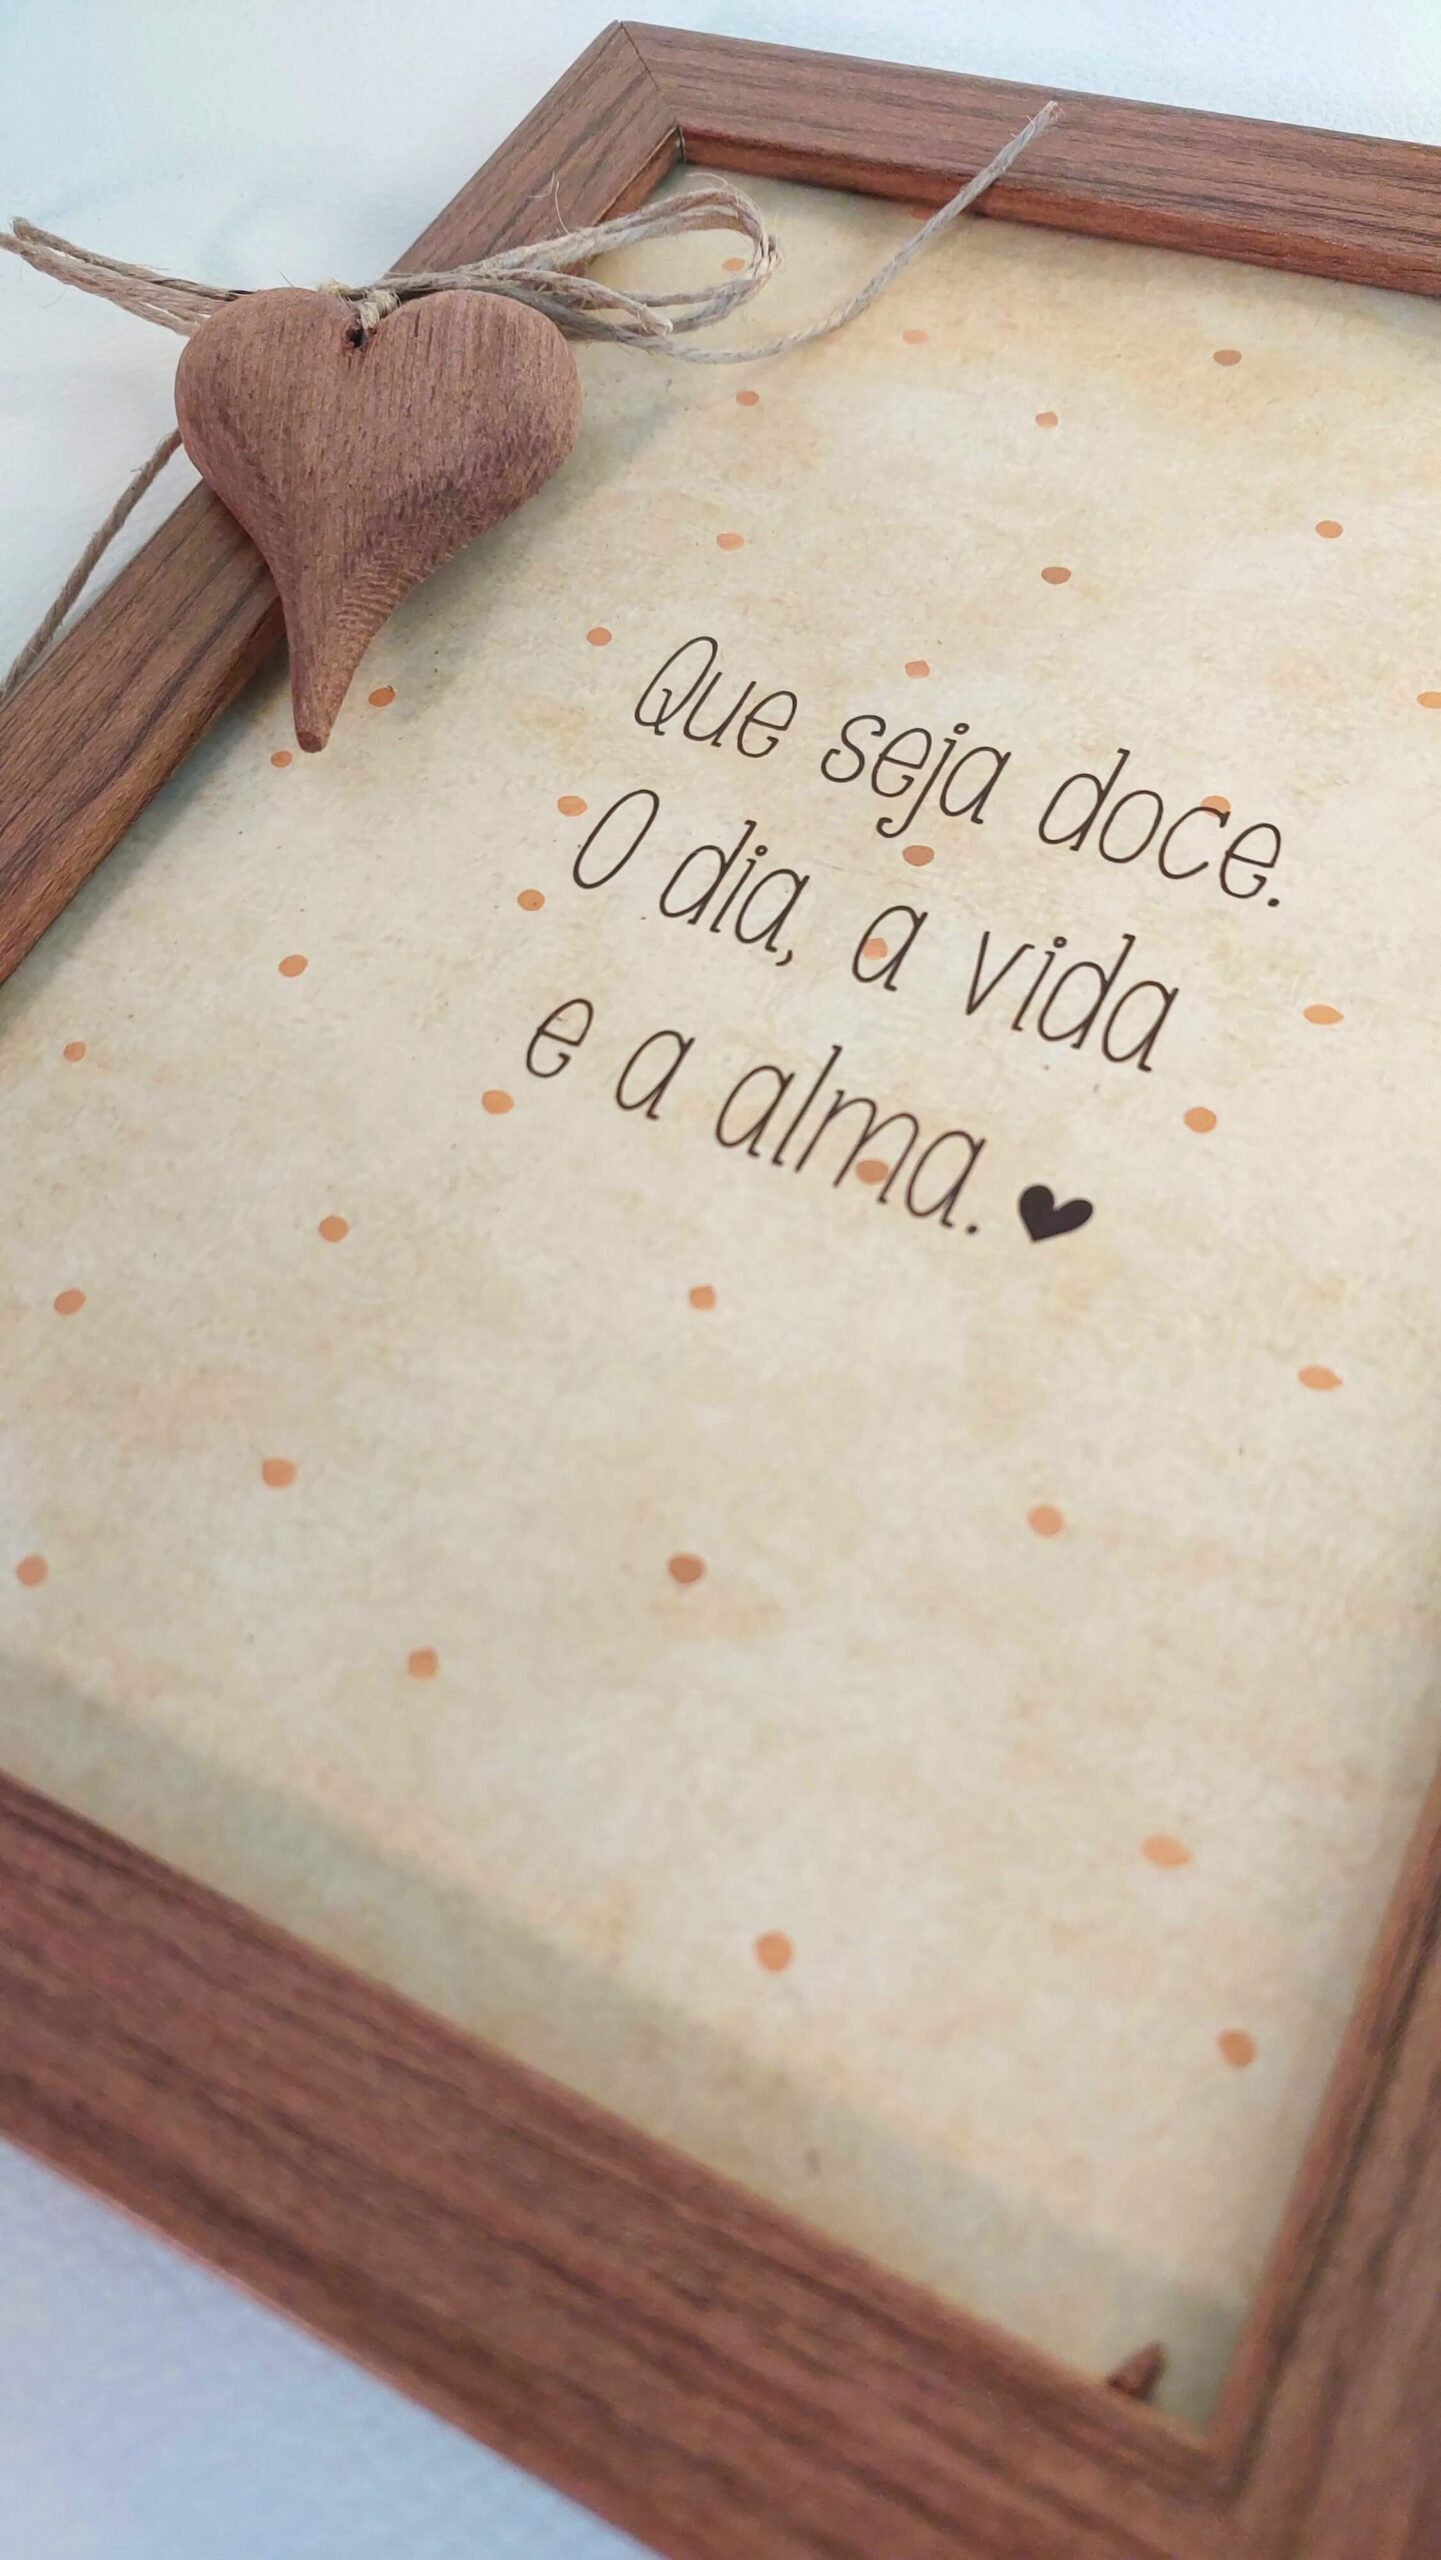 Que seja doce.
O dia, a vida
e a alma. ♥